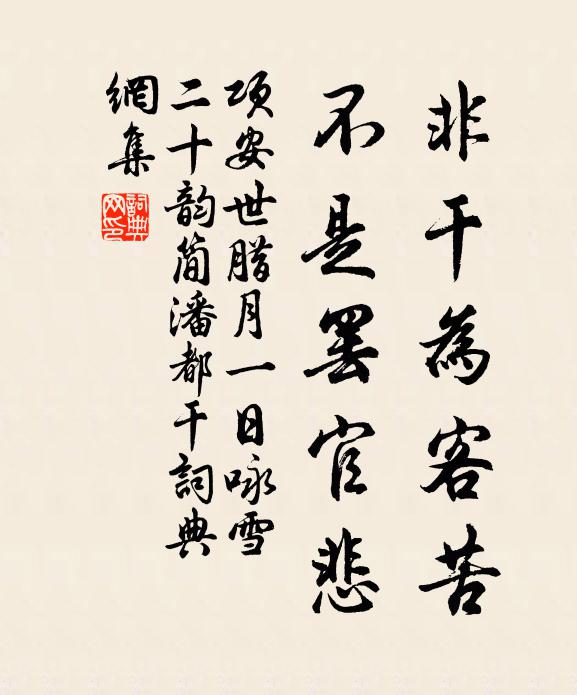 非干為客苦
不是罢官悲
项安世腊月一日咏雪
二十韵简潘都干詞典
網集
詞典网印